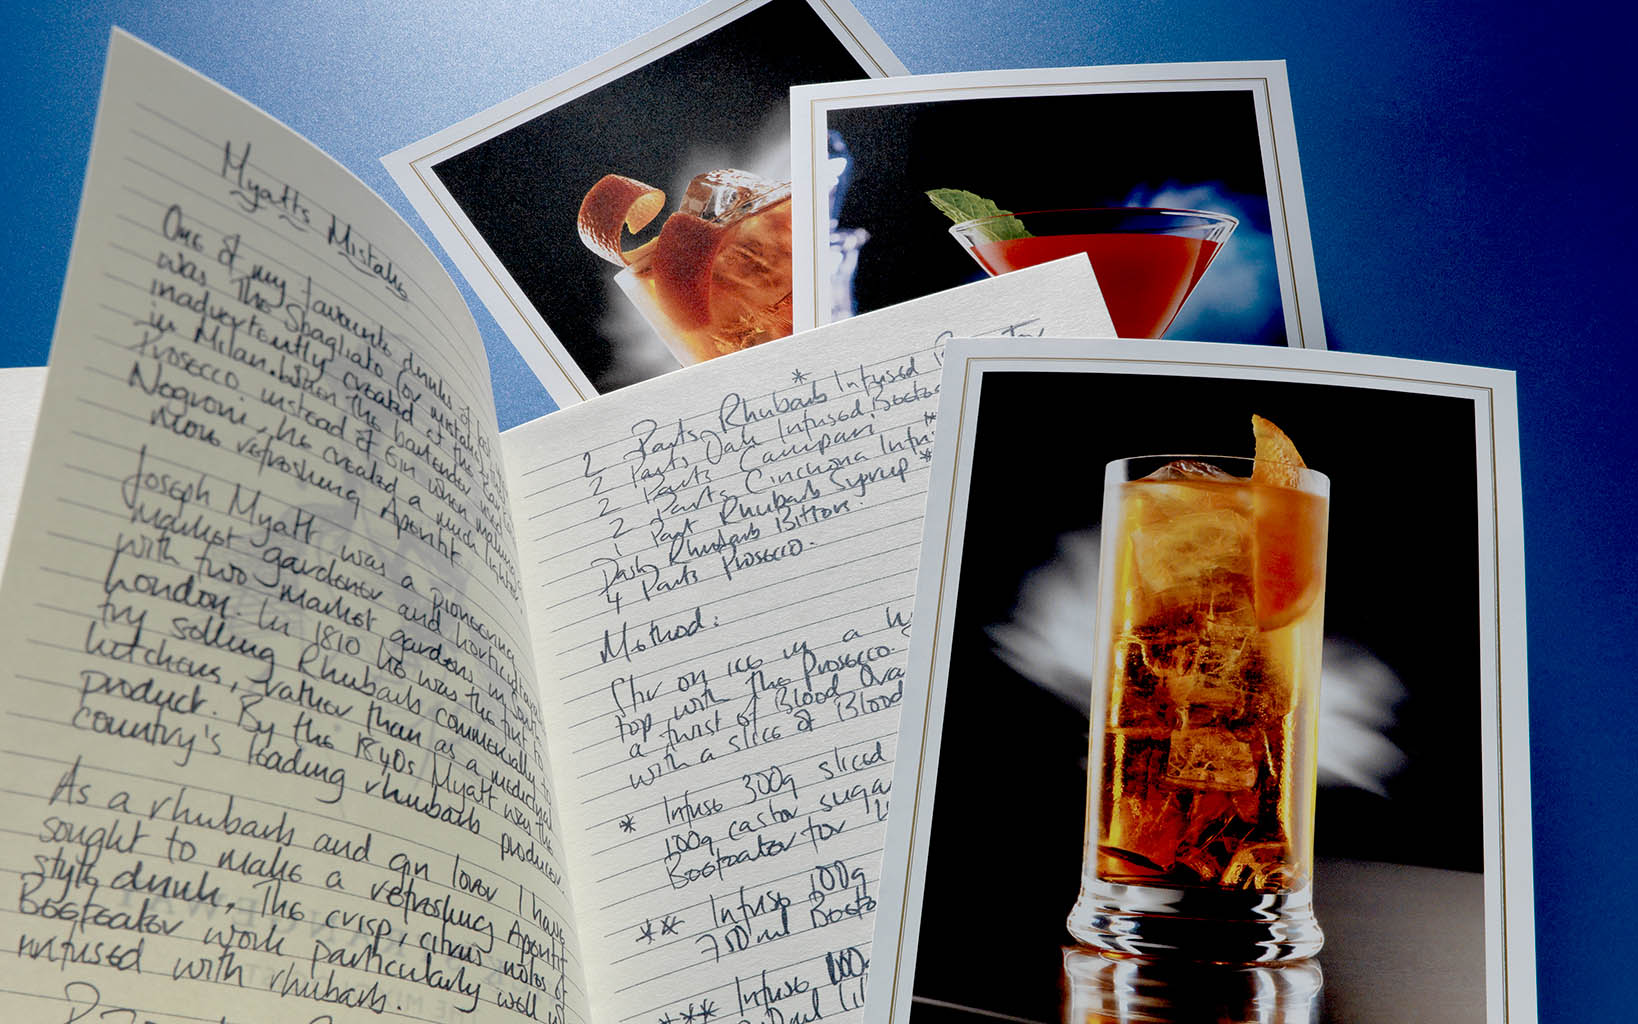 Myatts Mistake
One of my favourite drinks of
was the Sbagliato (or mistake)
inadvertently created at the Bar
in Milan. When the bartender used
Prosecco instead of Gin when making a
Negroni, he created a much lighter,
more refreshing Aperitif
Joseph Myatt was a pioneering
market gardener and horticultur
with two market gardens in south
London. In 1810 he was the first to
try selling Rhubarb commercially to
kitchens, rather than as a medicinal
product. By the 1840s Myatt was the
country's leading rhubarb producer.
As a rhubarb and gin lover I have
sought to make a refreshing Aperitif
style drink. The crisp, citrus notes of
Beefeater work particularly well w
infused with rhubarb.
2 Parts Rhubarb Infused *
2 Parts Oak Infused Beefea
2 Parts Campari
2 Parts Cinchona Infu
1 Part Rhubarb Syrup *
Dash Rhubarb Bitters.
4 Parts Prosecco.
Method:
Stir on ice in a h
top with the Prosecco.
a twist of Blood Ora
with a slice of Blood
* Infuse 300g sliced
100g castor sugar
Beefeater for
** Infuse 100g
750ml Beefe
*** Infuse